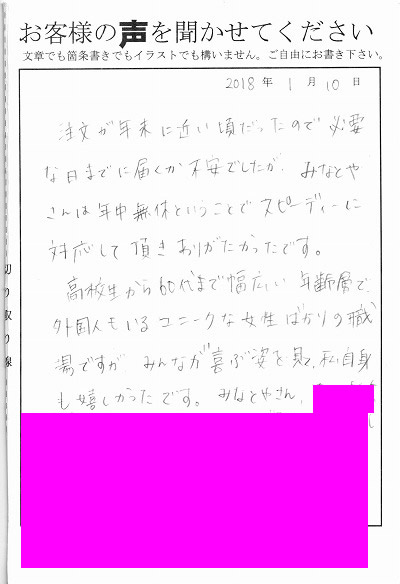 お客様の声を聞かせてください
文章でも箇条書きでもイラストでも構いません。ご自由にお書き下さい。
2018年 1月 10日
注文が年末に近い頃だったので 必要
な日までに届くか不安でしたが、みなとや
さんは年中無休ということで スピーディーに
対応して頂きありがたかったです。
高校生から60代まで幅広い 年齢層で
外国人もいるユニークな女性ばかりの職
場ですが みんなが喜ぶ姿を見て、私自身
も嬉しかったです。みなとやさん、
切り取り線